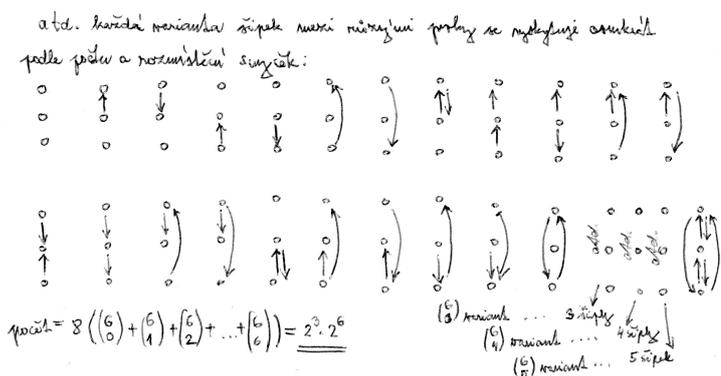 atd. každá varianta šipek mezi různými prvky se vyskytuje osmkrát
podle počtu a rozmístění smyček:
atd. atd. atd.
počet = 8 ((6 0) + (6 1) + (6 2) + ... + (6 6)) = 2³·2⁶
(6 3) variant .... 3 šipky
(6 4) variant ... 4 šipky
(6 5) variant ... 5 šipek